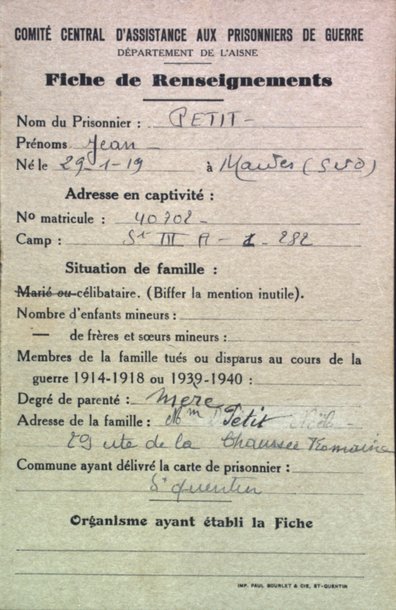 COMITÉ CENTRAL D'ASSISTANCE AUX PRISONNIERS DE GUERRE
DÉPARTEMENT DE L'AISNE
Fiche de Renseignements
Nom du Prisonnier : PETIT -
Prénoms Jean -
Né le 29-1-19 à (S&O)
Adresse en captivité :
No matricule : 40702 -
Camp : St III A - 1 - 282
Situation de famille :
Marié ou célibataire. (Biffer la mention inutile).
Nombre d'enfants mineurs :
— de frères et sœurs mineurs :
Membres de la famille tués ou disparus au cours de la
guerre 1914-1918 ou 1939-1940 :
Degré de parenté : Mère
Adresse de la famille : Mm Petit
29 de la Chaussée Romaine
Commune ayant délivré la carte de prisonnier :
St quentin
Organisme ayant établi la Fiche
IMP. PAUL BOURLET & CIE, ST-QUENTIN